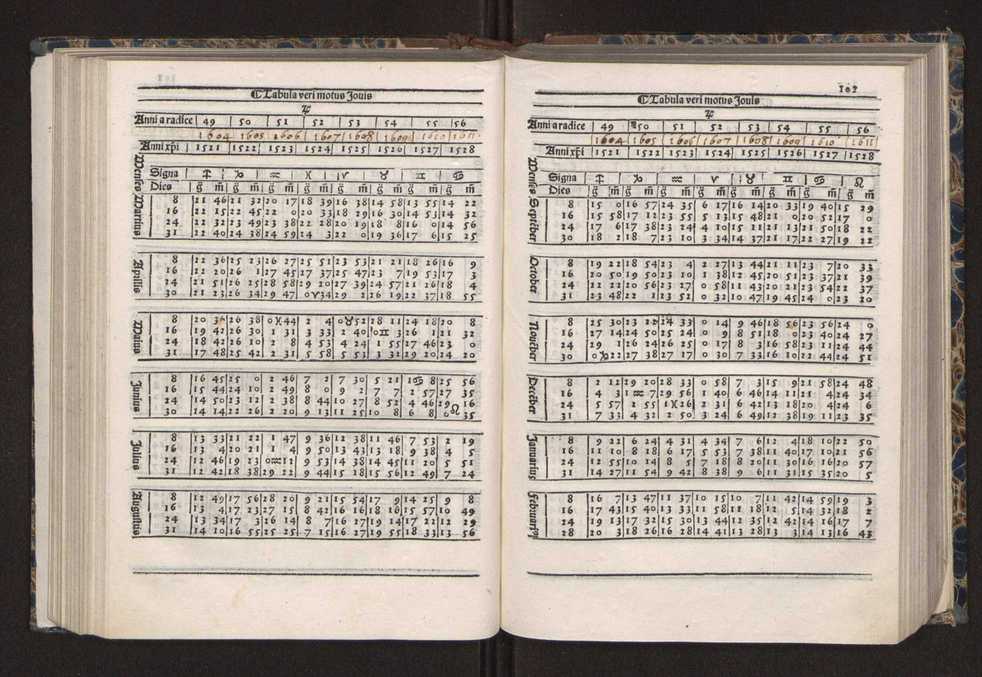 ℄ Tabula veri motus Jouis
♃
Anni a radice | 49 | 50 | 51 | 52 | 53 | 54 | 55 | 56
1604 1605 1606 1607 1608 1609 1610 1611
Anni xp̄i | 1521 | 1522 | 1523 | 1524 | 1525 | 1526 | 1527 | 1528
Menses
Signa | ♐ | ♑ | ♒ | ♓ | ♈ | ♉ | ♊ | ♋
Dies | g̃ m̃ | g̃ m̃ | g̃ m̃ | g̃ m̃ | g̃ m̃ | g̃ m̃ | g̃ m̃ | g̃ m̃
Martius
8 | 21 46 | 21 32 | 20 17 | 18 39 | 16 38 | 14 58 | 13 55 | 14 22
16 | 22 15 | 22 45 | 22 0 | 20 33 | 18 29 | 16 30 | 14 53 | 14 32
24 | 22 32 | 23 49 | 23 38 | 22 28 | 20 19 | 18 8 | 16 0 | 14 56
31 | 22 40 | 24 38 | 24 59 | 24 3 | 22 0 | 19 36 | 17 6 | 15 25
Aprilis
8 | 22 36 | 25 23 | 26 27 | 25 51 | 23 53 | 21 21 | 18 26 | 16 9
16 | 22 20 | 26 1 | 27 45 | 27 37 | 25 47 | 23 7 | 19 53 | 17 3
24 | 21 51 | 26 25 | 28 58 | 29 20 | 27 39 | 24 57 | 21 26 | 18 4
30 | 21 23 | 26 34 | 29 47 | 0 ♈ 34 | 29 2 | 26 19 | 22 37 | 18 55
Maius
8 | 20 36 | 26 38 | 0 ♓ 44 | 2 4 | 0 ♉ 52 | 28 11 | 24 18 | 20 8
16 | 19 42 | 26 30 | 1 31 | 3 33 | 2 40 | 0 ♊ 3 | 26 1 | 21 32
24 | 18 42 | 26 10 | 2 8 | 4 53 | 4 24 | 1 55 | 27 46 | 23 0
31 | 17 48 | 25 42 | 2 31 | 5 58 | 5 51 | 3 32 | 29 20 | 24 20
Junius
8 | 16 45 | 25 0 | 2 46 | 7 2 | 7 30 | 5 21 | 1 ♋ 8 | 25 56
16 | 15 44 | 24 10 | 2 49 | 8 0 | 9 2 | 7 7 | 2 57 | 27 35
24 | 14 50 | 23 12 | 2 38 | 8 44 | 10 27 | 8 52 | 4 46 | 29 16
30 | 14 14 | 22 26 | 2 20 | 9 13 | 11 25 | 10 8 | 6 8 | 0 ♌ 35
Julius
8 | 13 33 | 21 22 | 1 47 | 9 36 | 12 38 | 11 46 | 7 53 | 2 19
16 | 13 4 | 20 21 | 1 4 | 9 50 | 13 43 | 13 18 | 9 38 | 4 5
24 | 12 46 | 19 23 | 0 ♒ 11 | 9 53 | 14 38 | 14 45 | 11 20 | 5 51
31 | 12 42 | 18 38 | 29 22 | 9 44 | 15 18 | 15 56 | 12 49 | 7 24
Augustus
8 | 12 49 | 17 56 | 28 20 | 9 21 | 15 54 | 17 9 | 14 25 | 9 8
16 | 13 4 | 17 23 | 27 15 | 8 42 | 16 16 | 18 16 | 15 57 | 10 49
24 | 13 34 | 17 3 | 26 14 | 8 7 | 16 27 | 19 14 | 17 22 | 12 29
31 | 14 10 | 16 55 | 25 25 | 7 15 | 16 27 | 19 55 | 18 33 | 13 56
102
℄ Tabula veri motus Jouis
♃
Anni a radice | 49 | 50 | 51 | 52 | 53 | 54 | 55 | 56
1604 1605 1606 1607 1608 1609 1610 1611
Anni xp̄i | 1521 | 1522 | 1523 | 1524 | 1525 | 1526 | 1527 | 1528
Menses
Signa | ♐ | ♑ | ♒ | ♈ | ♉ | ♊ | ♋ | ♌
Dies | g̃ m̃ | g̃ m̃ | g̃ m̃ | g̃ m̃ | g̃ m̃ | g̃ m̃ | g̃ m̃ | g̃ m̃
Septēber
8 | 15 0 | 16 57 | 24 35 | 6 17 | 16 14 | 20 33 | 19 40 | 15 29
16 | 15 58 | 17 12 | 23 55 | 5 13 | 15 48 | 21 0 | 20 52 | 17 0
24 | 17 6 | 17 38 | 23 24 | 4 10 | 15 11 | 21 13 | 21 50 | 18 22
30 | 18 2 | 18 7 | 23 10 | 3 34 | 14 37 | 21 17 | 22 27 | 19 22
October
8 | 19 22 | 18 54 | 23 4 | 2 27 | 13 44 | 21 11 | 23 7 | 20 33
16 | 20 50 | 19 50 | 23 10 | 1 38 | 12 45 | 20 51 | 23 37 | 21 39
24 | 22 22 | 20 56 | 23 27 | 0 58 | 11 43 | 20 21 | 23 54 | 22 37
31 | 23 48 | 22 1 | 23 52 | 0 32 | 10 47 | 19 45 | 24 0 | 23 20
Nouēber
8 | 25 30 | 23 22 | 24 33 | 0 14 | 9 46 | 18 56 | 23 56 | 24 0
16 | 27 14 | 24 50 | 25 24 | 0 9 | 8 51 | 18 0 | 23 40 | 24 27
24 | 29 1 | 26 24 | 26 25 | 0 17 | 8 3 | 16 58 | 23 11 | 24 44
31 | 0 ♑ 22 | 27 38 | 27 17 | 0 30 | 7 33 | 16 10 | 22 44 | 24 51
Decēber
8 | 2 12 | 29 20 | 28 33 | 0 58 | 7 3 | 15 9 | 21 58 | 24 48
16 | 4 3 | 1 ♒ 7 | 29 56 | 1 40 | 6 46 | 14 11 | 21 4 | 24 35
24 | 5 57 | 2 55 | 1 ♓ 26 | 2 31 | 6 42 | 13 18 | 20 4 | 24 6
31 | 7 33 | 4 32 | 2 50 | 3 24 | 6 49 | 12 38 | 19 11 | 23 35
Januarius
8 | 9 22 | 6 24 | 4 31 | 4 34 | 7 6 | 12 4 | 18 10 | 22 50
16 | 11 10 | 8 18 | 6 17 | 5 53 | 7 38 | 11 40 | 17 10 | 21 56
24 | 12 55 | 10 14 | 8 5 | 7 18 | 8 20 | 11 30 | 16 16 | 20 57
31 | 14 27 | 11 54 | 9 42 | 8 38 | 9 6 | 11 31 | 15 35 | 20 5
Februarius
8 | 16 7 | 13 47 | 11 37 | 10 15 | 10 7 | 11 42 | 14 59 | 19 3
16 | 17 43 | 15 40 | 13 33 | 11 58 | 11 18 | 12 5 | 14 32 | 18 2
24 | 19 13 | 17 32 | 15 30 | 13 44 | 12 35 | 12 42 | 14 16 | 17 7
28 | 20 3 | 18 26 | 16 28 | 14 41 | 13 28 | 13 3 | 14 13 | 16 43